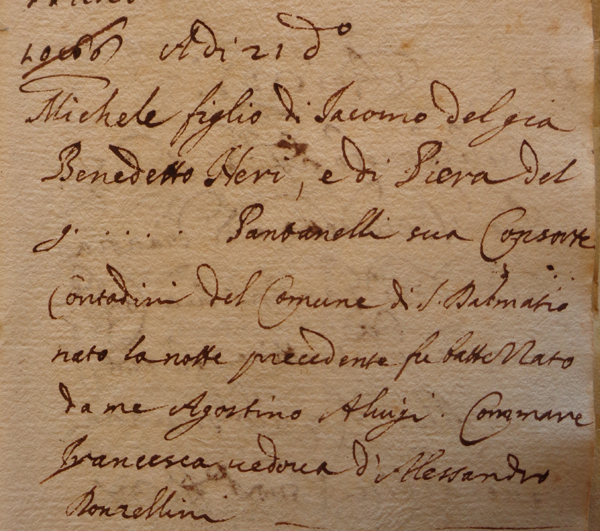 Adi 21 do
Michele figlio di Iacomo del gia
Benedetto Neri, e di Piera del
g. . . . . . Pantanelli sua Consorte
Contadini del Comune di S. Dalmatio
nato la notte precedente fu battezzato
da me Agostino Aluigi. Commare
Francesca vedova d'Alessandro
Ronzellini